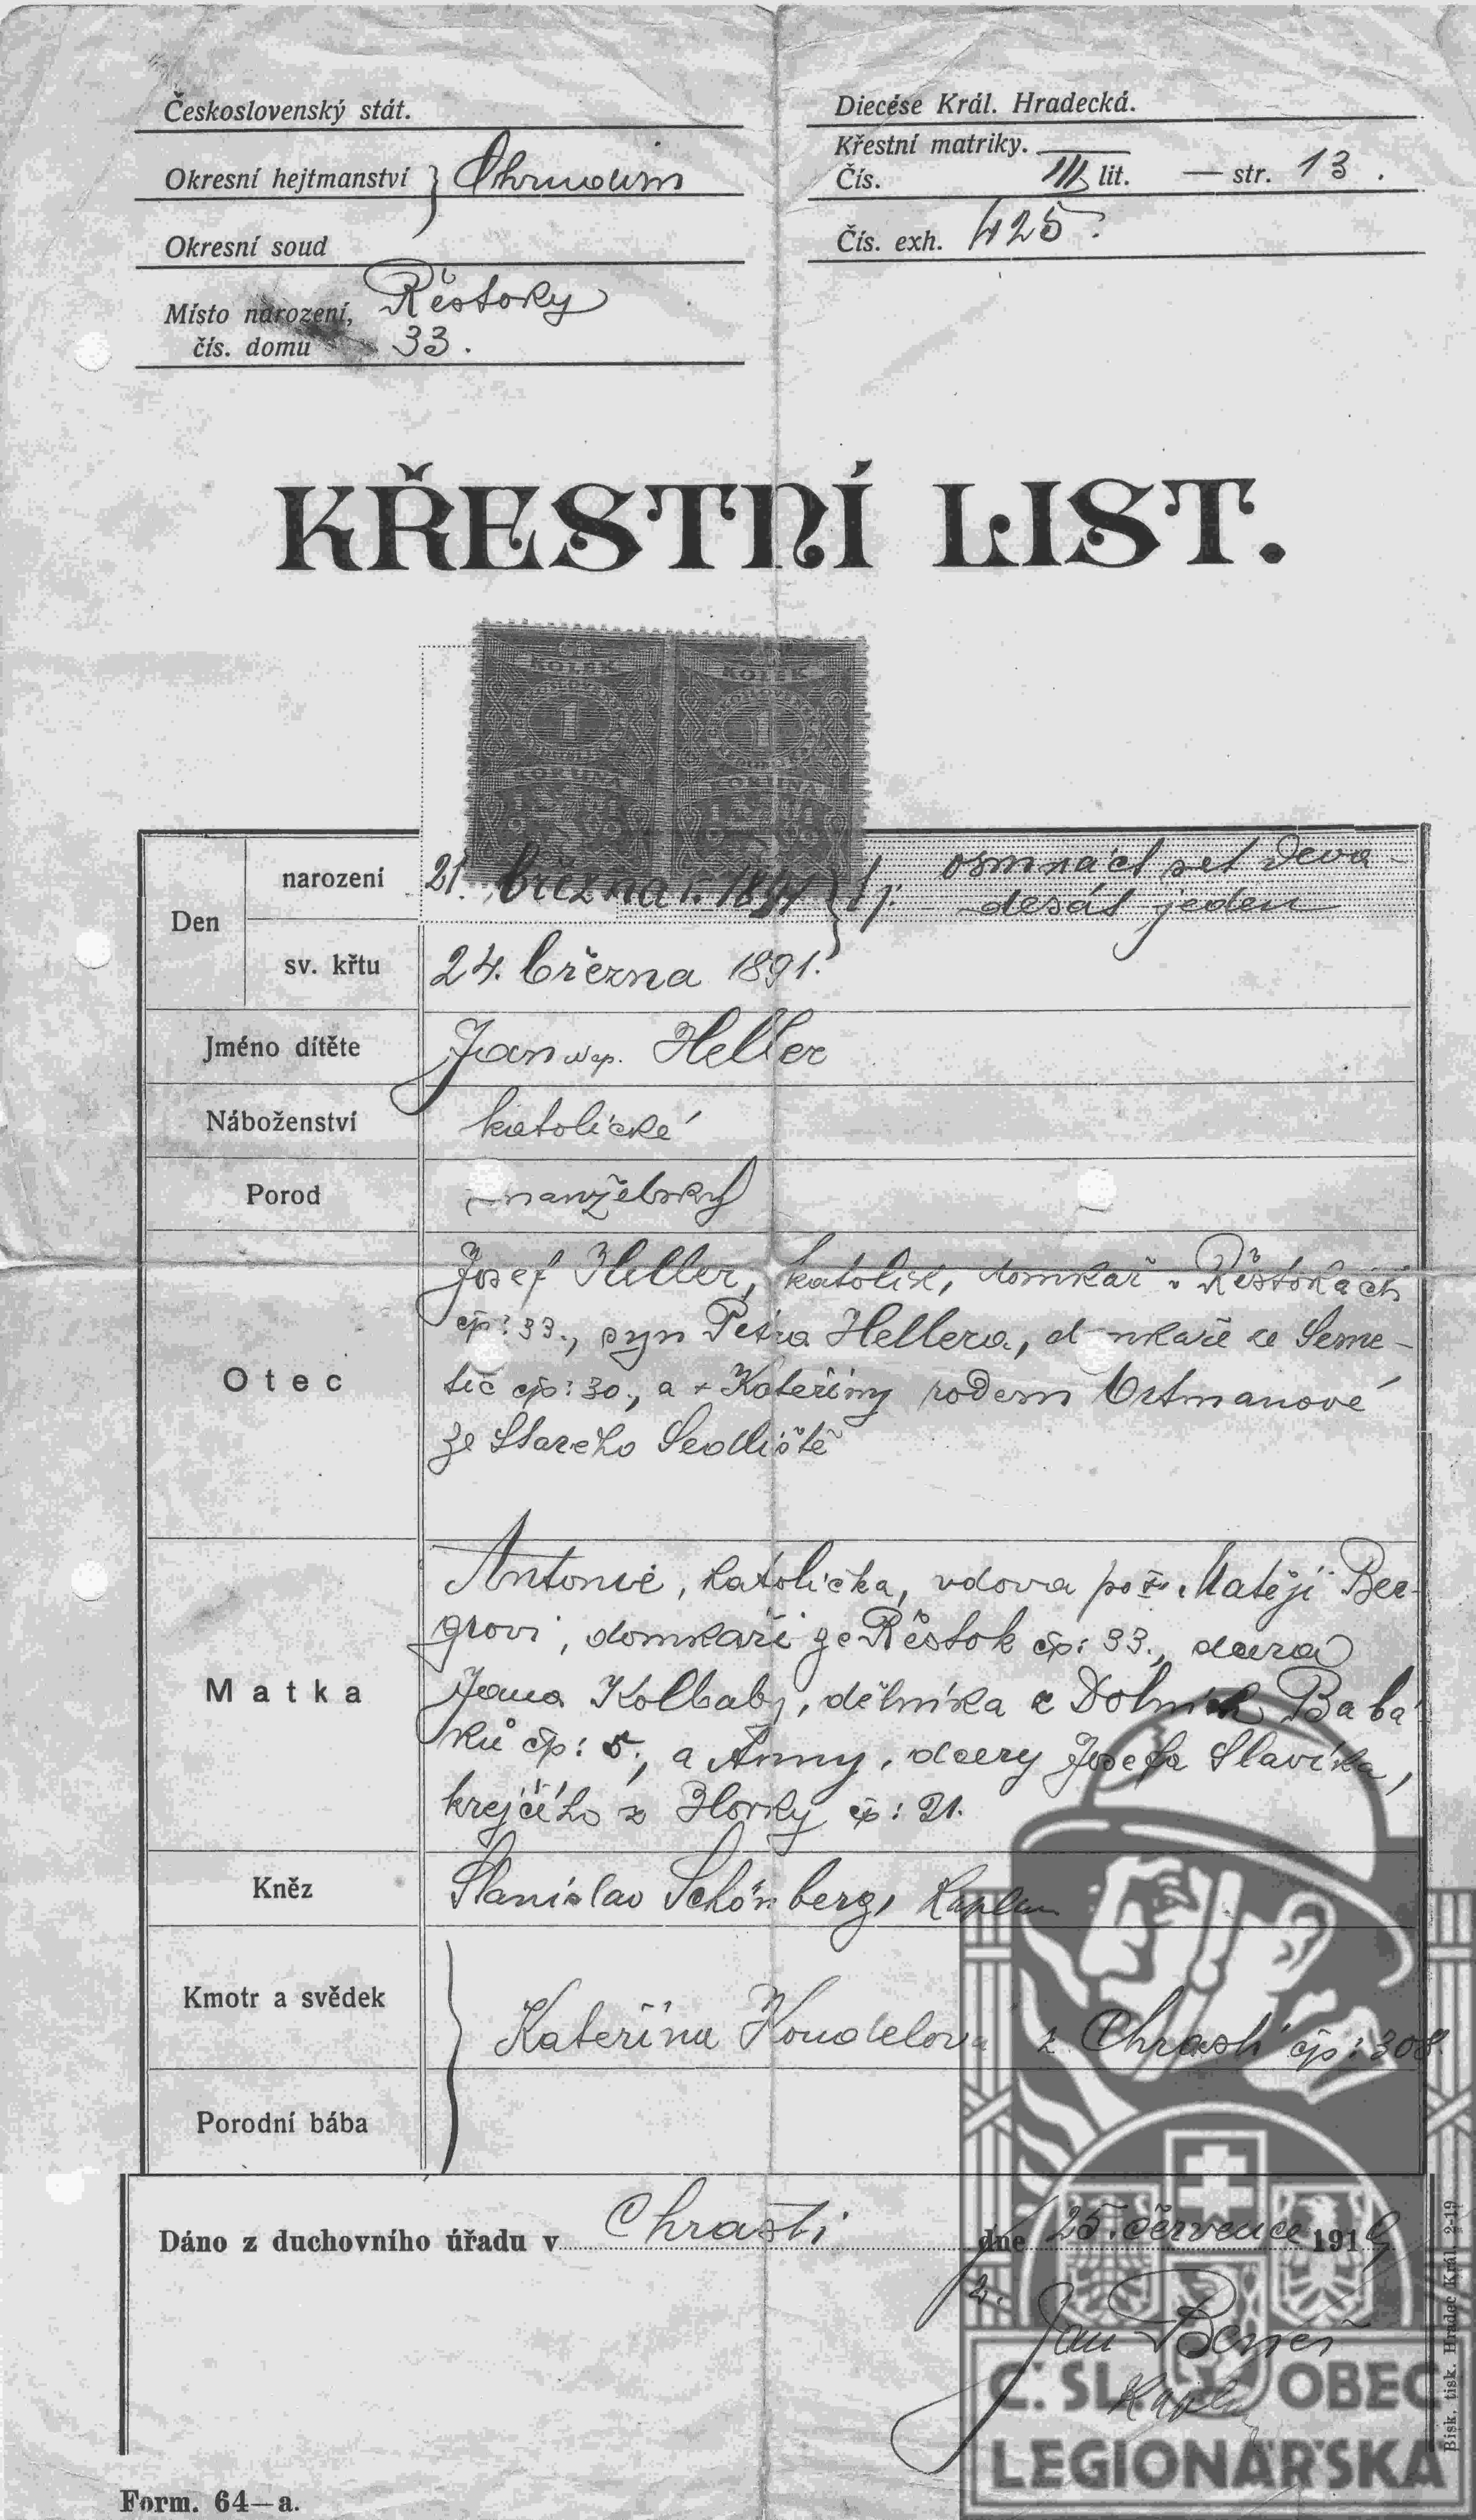 Československý stát.
Okresní hejtmanství } Chrudim
Okresní soud
Místo narození, Řestoky
čís. domu 33.
Diecése Král. Hradecká.
Křestní matriky.
Čís. III lit. — str. 13.
Čís. exh. 425.
KŘESTNÍ LIST.
KOLEK KOLEK
1 1
KORUNA KORUNA
Den
narození 21. března r. 1891 } tj. osmnáct set deva-
desát jeden
sv. křtu 24. března 1891.
Jméno dítěte Jan Heller
Náboženství katolické
Porod manželský
Otec
Josef Heller, katolík, domkař v Řestokách
čp: 33., syn Petra Hellera, domkaře ze Seme-
tic čp: 30., a + Kateřiny rodem Ortmanové
ze Starého Sedliště
Matka
Antonie, katolička, vdova po Matěji Ber-
grovi, domkáři ze Řestok čp: 33., dcera
Jana Kolbaby, dělníka z Dolních Babá
ků čp: 5., a Anny, dcery Josefa Slavíka,
krejčího z Horky čp: 21.
Kněz Stanislav Schönberg, kaplan
Kmotr a svědek
Kateřina Koudelová z Chrasti čp: 308.
Porodní bába
Dáno z duchovního úřadu v Chrasti dne 25. července 1919
Jan Beneš
kaplan
Č. SL. OBEC
LEGIONÁŘSKÁ
Bisk. tisk. Hradec Král. 2-19
Form. 64—a.